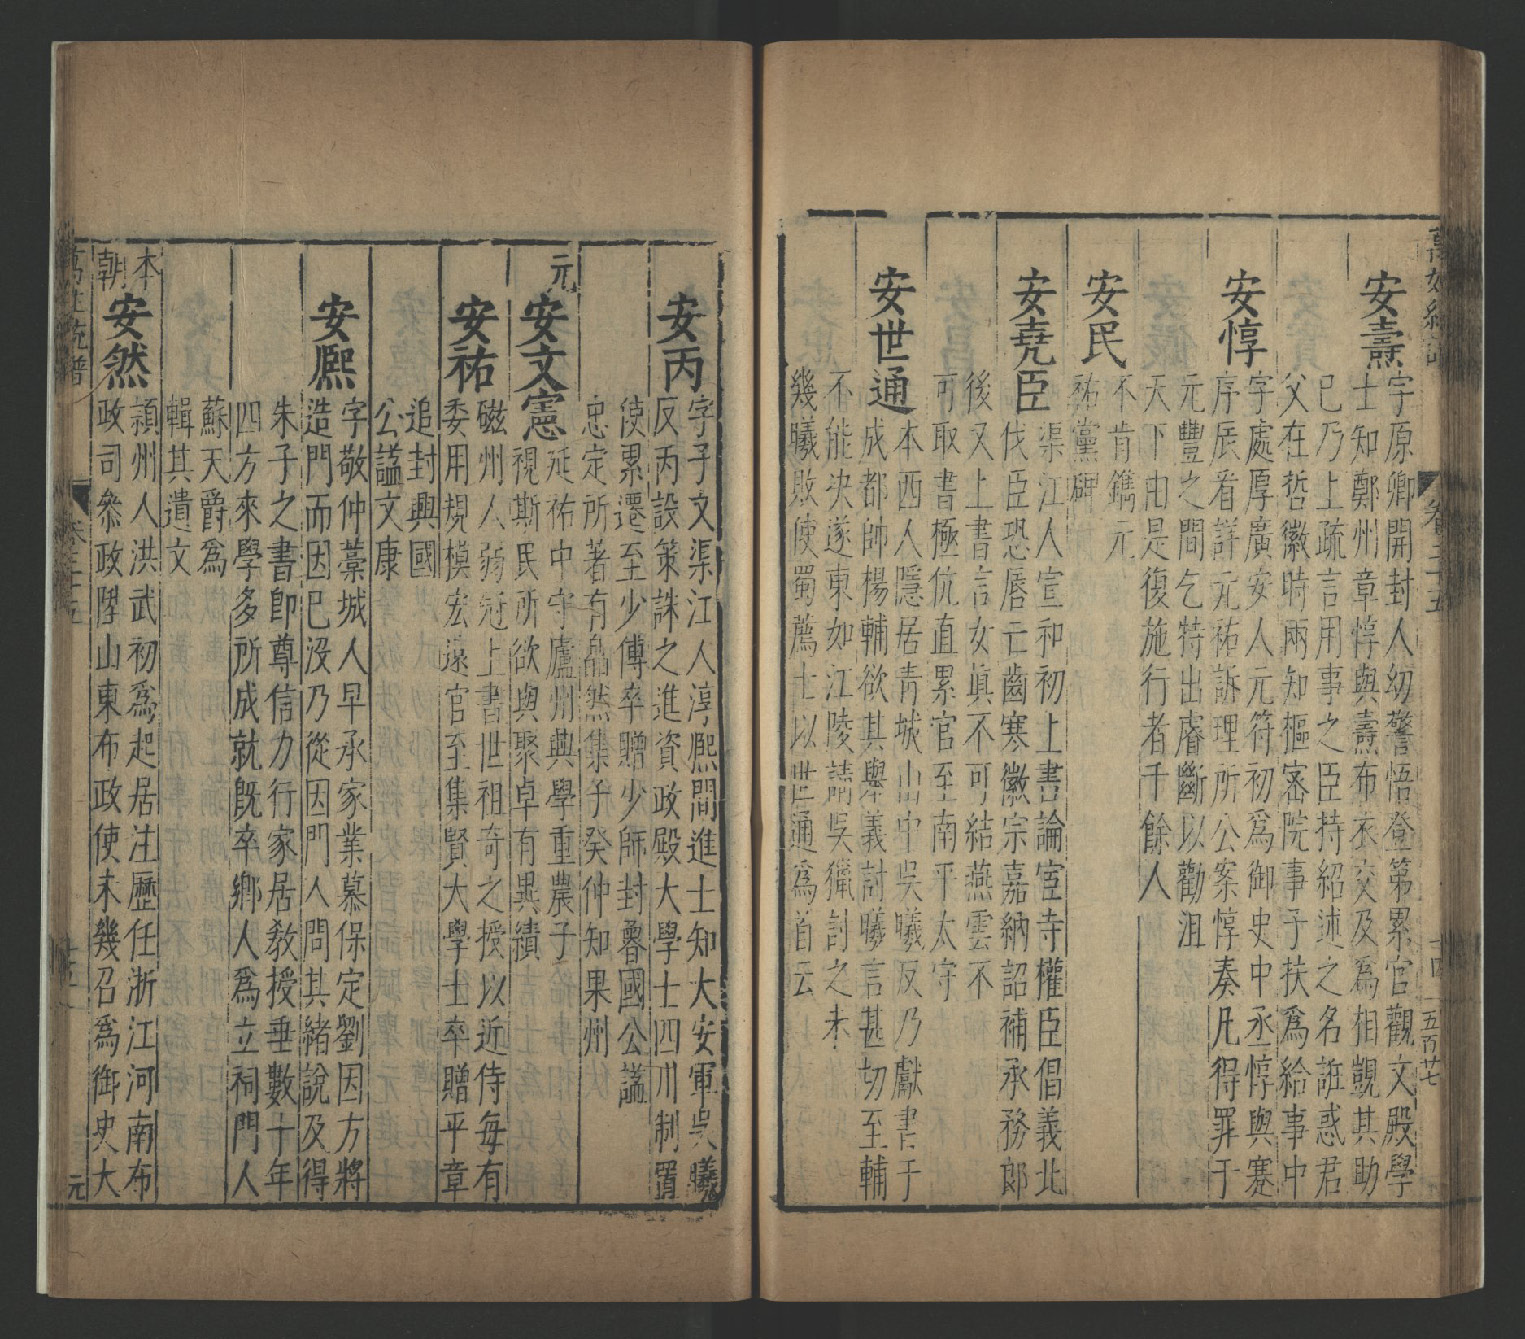 萬姓統譜 卷二十五 十四 五百廿七
安燾 字原卿開封人幼警悟登第累官觀文殿學
士知鄭州章惇與燾布衣交及爲相覬其助
巳乃上疏言用事之臣持紹述之名誑惑君
父在哲徽時兩知樞密院事子扶爲給事中
安惇 字處厚廣安人元符初爲御史中丞惇與蹇
序辰看詳元祐訴理所公案惇奏凡得罪于
元豐之間乞特出睿斷以勸沮
天下由是復施行者千餘人
安民 不肯鐫元
祐黨碑
安堯臣 渠江人宣和初上書論宦寺權臣倡義北
伐臣恐唇亡齒寒徽宗嘉納詔補承務郎
後又上書言女眞不可結燕雲不
可取書極伉直累官至南平太守
安世通 本西人隱居青城山中吳曦反乃獻書于
成都帥楊輔欲其舉義討曦言甚切至輔
不能决遂東如江陵請吳獵討之未
幾曦敗使蜀薦士以世通爲首云
安丙 字子文渠江人淳熈間進士知大安軍吳曦
反丙設策誅之進資政殿大學士四川制置
使累遷至少傅卒贈少師封魯國公謚
忠定所著有皛然集子癸仲知果州
元
安文憲 延祐中守廬州興學重農子
視斯民所欲與聚卓有異績
安祐 磁州人弱冠上書世祖奇之授以近侍每有
委用規模宏遠官至集賢大學士卒贈平章
追封興國
公謚文康
安熈 字敬仲藁城人早承家業慕保定劉因方將
造門而因巳没乃從因門人問其緒說及得
朱子之書卽尊信力行家居敎授垂數十年
四方來學多所成就旣卒鄉人爲立祠門人
蘇天爵爲
輯其遺文
本朝
安然 潁州人洪武初爲起居注歷任浙江河南布
政司叅政陞山東布政使未幾召爲御史大
萬姓統譜 卷二十五 十五 元